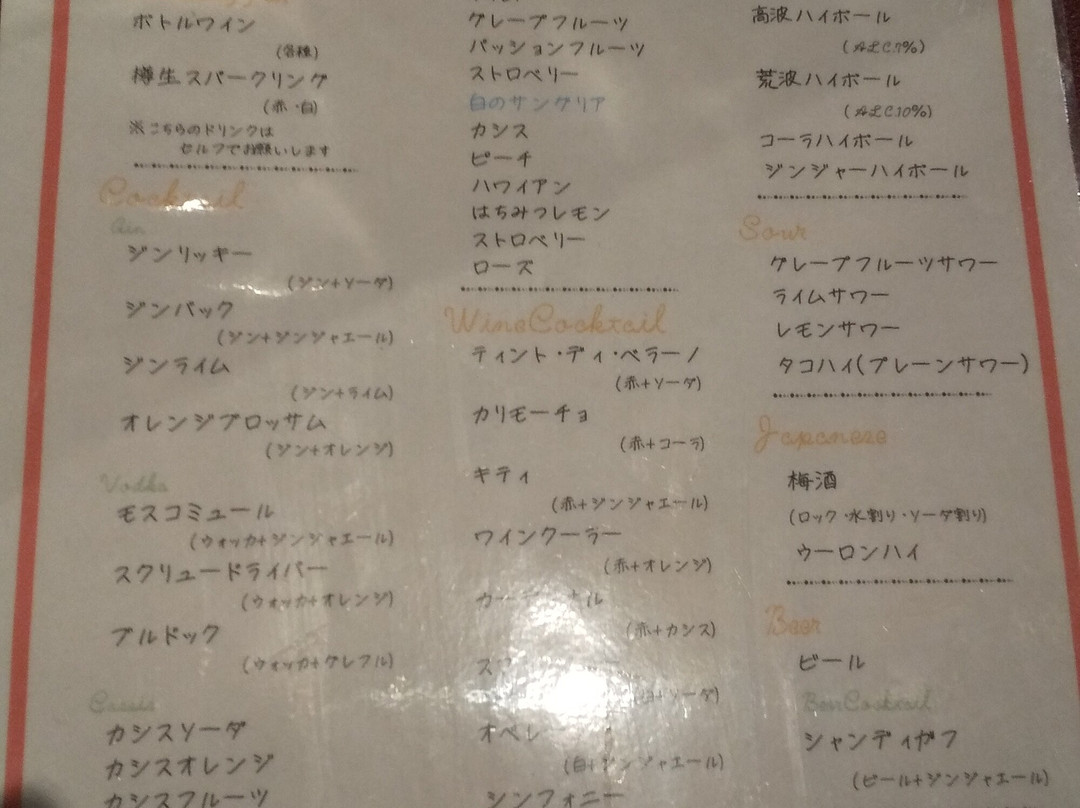 ボトルワイン
(各種)
樽生スパークリング
(赤・白)
※こちらのドリンクは
セルフでお願いします
Cocktail
Gin
ジンリッキー
(ジン+ソーダ)
ジンバック
(ジン+ジンジャエール)
ジンライム
(ジン+ライム)
オレンジブロッサム
(ジン+オレンジ)
Vodka
モスコミュール
(ウォッカ+ジンジャエール)
スクリュードライバー
(ウォッカ+オレンジ)
ブルドック
(ウォッカ+グレフル)
Cassis
カシスソーダ
カシスオレンジ
カシスフルーツ
グレープフルーツ
パッションフルーツ
ストロベリー
白のサングリア
カシス
ピーチ
ハワイアン
はちみつレモン
ストロベリー
ローズ
WineCocktail
ティント・ディ・ベラーノ
(赤+ソーダ)
カリモーチョ
(赤+コーラ)
キティ
(赤+ジンジャエール)
ワインクーラー
(赤+オレンジ)
(赤+カシス)
(白+ソーダ)
(白+ジンジャエール)
シンフォニー
高波ハイボール
(ALC.7%)
荒波ハイボール
(ALC.10%)
コーラハイボール
ジンジャーハイボール
Sour
グレープフルーツサワー
ライムサワー
レモンサワー
タコハイ(プレーンサワー)
Japanese
梅酒
(ロック・水割り・ソーダ割り)
ウーロンハイ
Beer
ビール
BeerCocktail
シャンディガフ
(ビール+ジンジャエール)